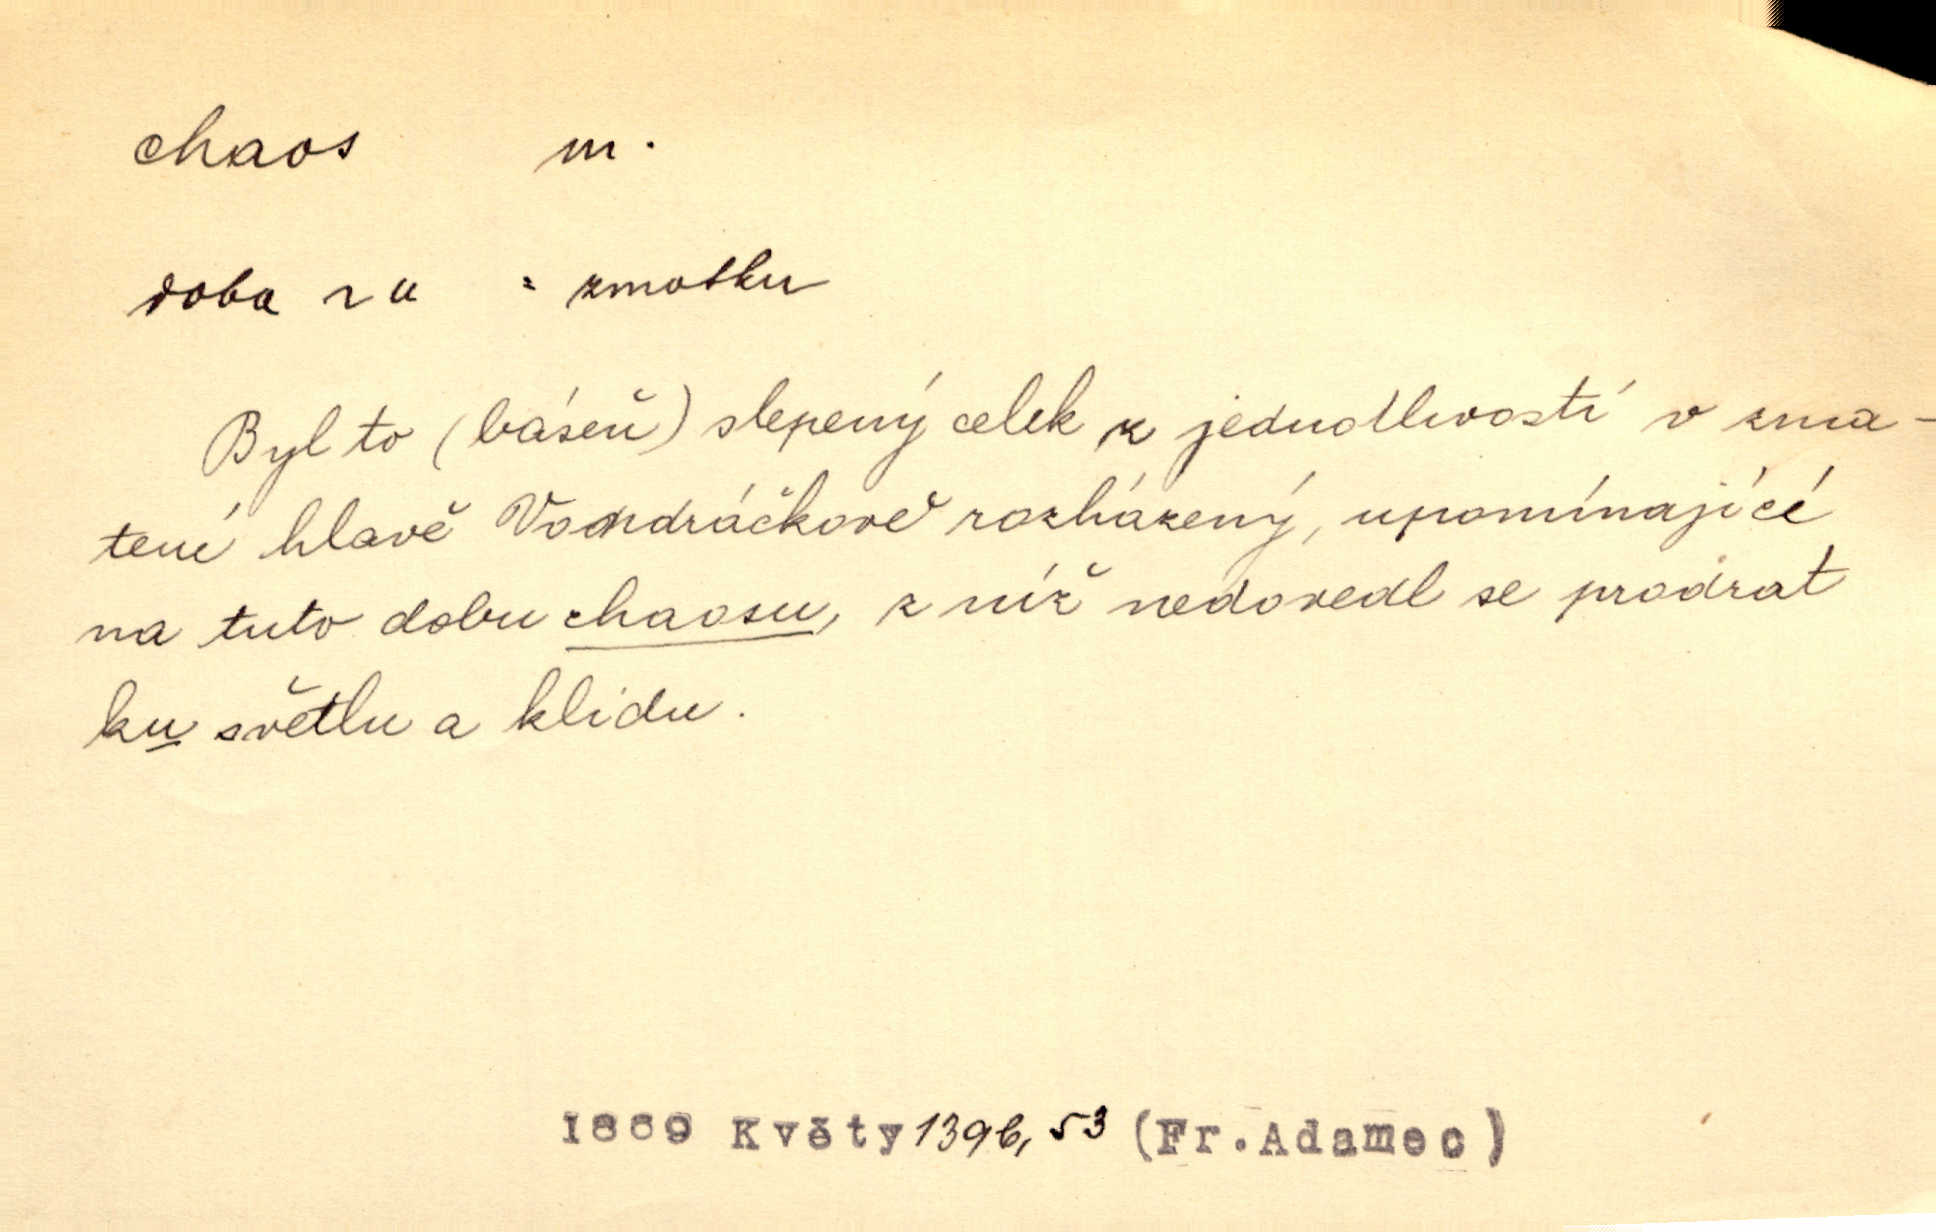 chaos m.
doba ~u = zmatku
Byl to (báseň) slepený celek z jednotlivostí v zma-
tené hlavě Vondráčkově rozházený, upomínající
na tuto dobu chaosu, z níž nedovedl se prodrat
ku světlu a klidu.
1889 Květy 139b, 53 (Fr. Adamec)